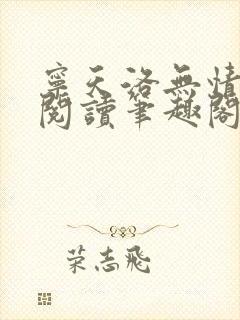 寧天洛無情
閱讀筆趣閣
荣志飛